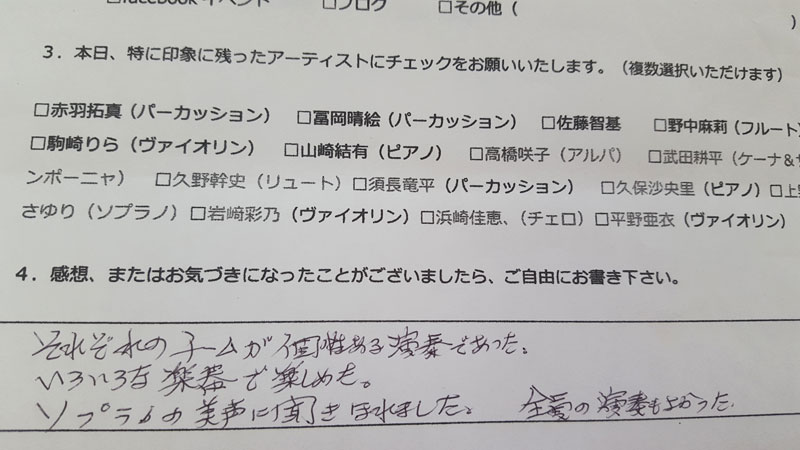 □facebook イベント □ブログ □その他（ ）
３．本日、特に印象に残ったアーティストにチェックをお願いいたします。（複数選択いただけます）
□赤羽拓真（パーカッション） □冨岡晴絵（パーカッション） □佐藤智基 □野中麻莉（フルート）
□駒崎りら（ヴァイオリン） □山崎結有（ピアノ） □高橋咲子（アルパ） □武田耕平（ケーナ＆サ
ンポーニャ） □久野幹史（リュート）□須長竜平（パーカッション） □久保沙央里（ピアノ）□上野
さゆり（ソプラノ）□岩﨑彩乃（ヴァイオリン）□浜崎佳恵、（チェロ）□平野亜衣（ヴァイオリン）
４．感想、またはお気づきになったことがございましたら、ご自由にお書き下さい。
それぞれのチームが個性ある演奏であった。
いろいろな楽器で楽しめた。
ソプラノの美声に聞きほれました。 の演奏もよかった。